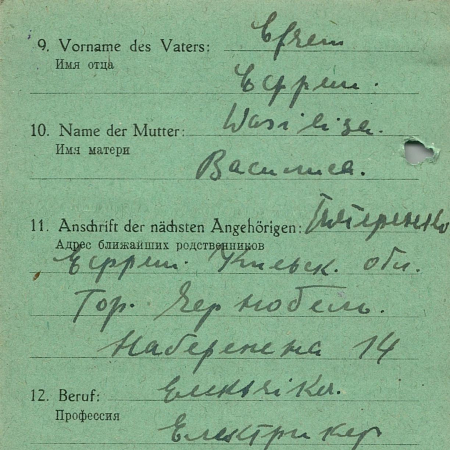 9. Vorname des Vaters: Efrem
Имя отца
Ефрем.
10. Name der Mutter: Wasiliza.
Имя матери
Василиса.
11. Anschrift der nächsten Angehörigen:
Адрес ближайших родственников
Ефрем. Киевск. обл.
Гор. Чернобель.
Набережна 14
12. Beruf:
Профессия
Електрикер